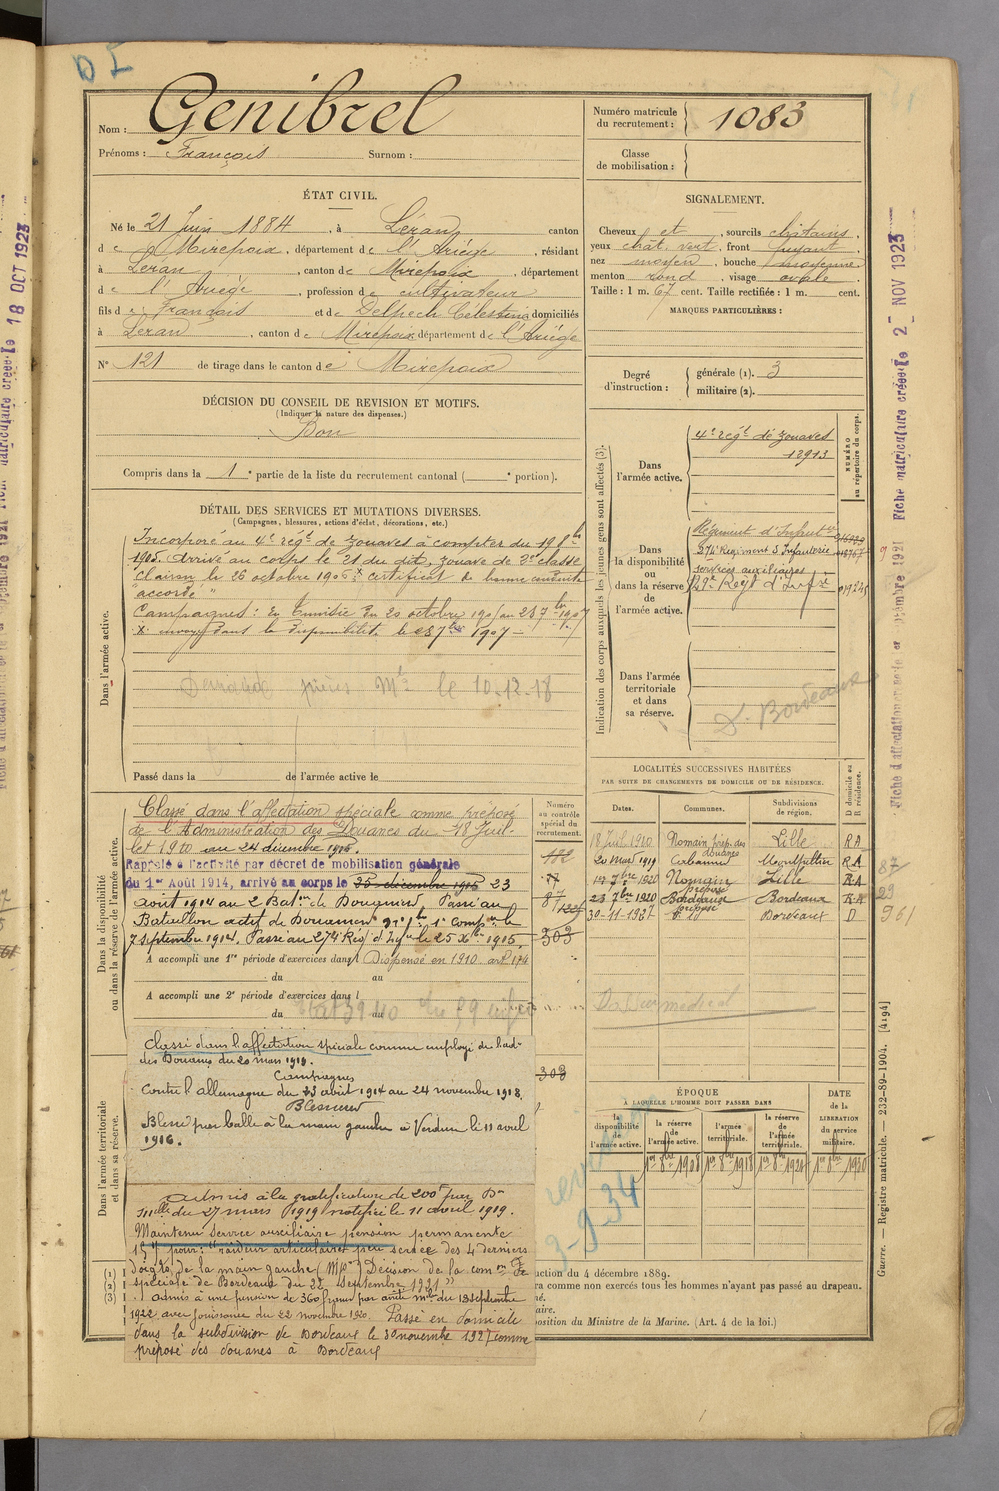 D I
Nom : Genibrel
Prénoms : François Surnom :
Numéro matricule du recrutement : 1083
Classe de mobilisation :
ÉTAT CIVIL.
Né le 21 Juin 1884, à Léran canton
de Mirepoix, département de l'Ariège, résidant
à Léran, canton de Mirepoix, département
de l'Ariège, profession de cultivateur
fils de François et de Delpech Célestine domiciliés
à Léran, canton de Mirepoix département de l'Ariège
N° 121 de tirage dans le canton de Mirepoix
DÉCISION DU CONSEIL DE REVISION ET MOTIFS.
(Indiquer la nature des dispenses.)
Bon
Compris dans la 1e partie de la liste du recrutement cantonal ( e portion).
SIGNALEMENT.
Cheveux et, sourcils châtains,
yeux chât. vert, front fuyant,
nez moyen, bouche moyenne,
menton rond visage ovale.
Taille : 1 m. 67 cent. Taille rectifiée : 1 m. cent.
MARQUES PARTICULIÈRES :
Degré d'instruction : générale (1). 3
militaire (2).
DÉTAIL DES SERVICES ET MUTATIONS DIVERSES.
(Campagnes, blessures, actions d'éclat, décorations, etc.)
Dans l'armée active.
Incorporé au 4e regt de zouaves à compter du 19 8bre
1905. Arrivé au corps le 21 du dit, zouave de 2e classe
clairon le 26 octobre 1906 x certificat de bonne conduite
accordé "
Campagnes : En Tunisie du 20 octobre 1905 au 23 7bre 1907
x envoyé dans la disponibilité le 23 7bre 1907
Demande pièces Mle le 10-12-18
Passé dans la de l'armée active le
Indication des corps auxquels les jeunes gens sont affectés (3).
NUMÉRO au répertoire du corps.
Dans l'armée active.
4e regt de zouaves
12913
Dans la disponibilité ou dans la réserve de l'armée active.
Régiment d'Infanterie
274e Régiment d'Infanterie
services auxiliaires
Regt d'Inf
Dans l'armée territoriale et dans sa réserve.
D. Bordeaux
Dans la disponibilité ou dans la réserve de l'armée active.
Numéro au contrôle spécial du recrutement.
Classé dans l'affectation spéciale comme préposé
de l'Administration des Douanes du 18 Juil-
let 1910 au 24 décembre 1915.
Rappelé à l'activité par décret de mobilisation générale
du 1er Août 1914, arrivé au corps le 25 décembre 1915 23
août 1914 au 2 Batn de Douaniers Passé au
Bataillon actif de Douaniers 1e compie le
7 septembre 1914. Passé au 274 Régt d'Infie le 25 Xbre 1915.
A accompli une 1re période d'exercices dans l Dispensé en 1910 art 174
du au
A accompli une 2e période d'exercices dans l
du au
182
303
303
LOCALITÉS SUCCESSIVES HABITÉES
PAR SUITE DE CHANGEMENTS DE DOMICILE OU DE RÉSIDENCE.
Dates. Communes. Subdivisions de région. D domicile ou R résidence.
18 Juil. 1910 Nomain prép. des douanes Lille RA
20 mars 1919 Cabanne Montpellier RA
17 7bre 1920 Nomain préposé Lille RA
23 7bre 1920 Bordeaux préposé Bordeaux RA
30-11-1927 d° Bordeaux D
87
29
961
Dans l'armée territoriale et dans sa réserve.
Classé dans l'affectation spéciale comme employé de l'adon
des Douanes du 20 mars 1919.
Campagnes
Contre l'Allemagne du 23 août 1914 au 24 novembre 1918.
Blessures
Blessé par balle à la main gauche à Verdun le 11 avril
1916.
Admis à la gratification de 200f par Dn
mlle du 27 mars 1919 notifiée le 11 avril 1919.
Maintenu service auxiliaire pension permanente
15% pour : "raideur articulaire peu serrée des 4 derniers
doigts de la main gauche (Mpr) Décision de la comon de
spéciale de Bordeaux du 27 septembre 1921"
Admis à une pension de 360 francs par arrêté mel du 13 septembre
1922 avec jouissance du 22 novembre 1920. Passé en domicile
dans la subdivision de Bordeaux le 30 novembre 1927 comme
préposé des douanes à Bordeaux
ÉPOQUE
À LAQUELLE L'HOMME DOIT PASSER DANS
DATE de la LIBÉRATION du service militaire.
la disponibilité de l'armée active.
la réserve de l'armée active.
l'armée territoriale.
la réserve de l'armée territoriale.
1er 8bre 1908 1er 8bre 1918 1er 8bre 1924 1er 8bre 1930
3-9-34
(1)
(2)
(3)
uction du 4 décembre 1889.
ra comme non exercés tous les hommes n'ayant pas passé au drapeau.
né.
aire.
position du Ministre de la Marine. (Art. 4 de la loi.)
Guerre. — Registre matricule. — 232-89-1904. [4194]
Fiche matriculaire créée le 2 NOV 1923
matriculaire créée le 18 OCT 1923